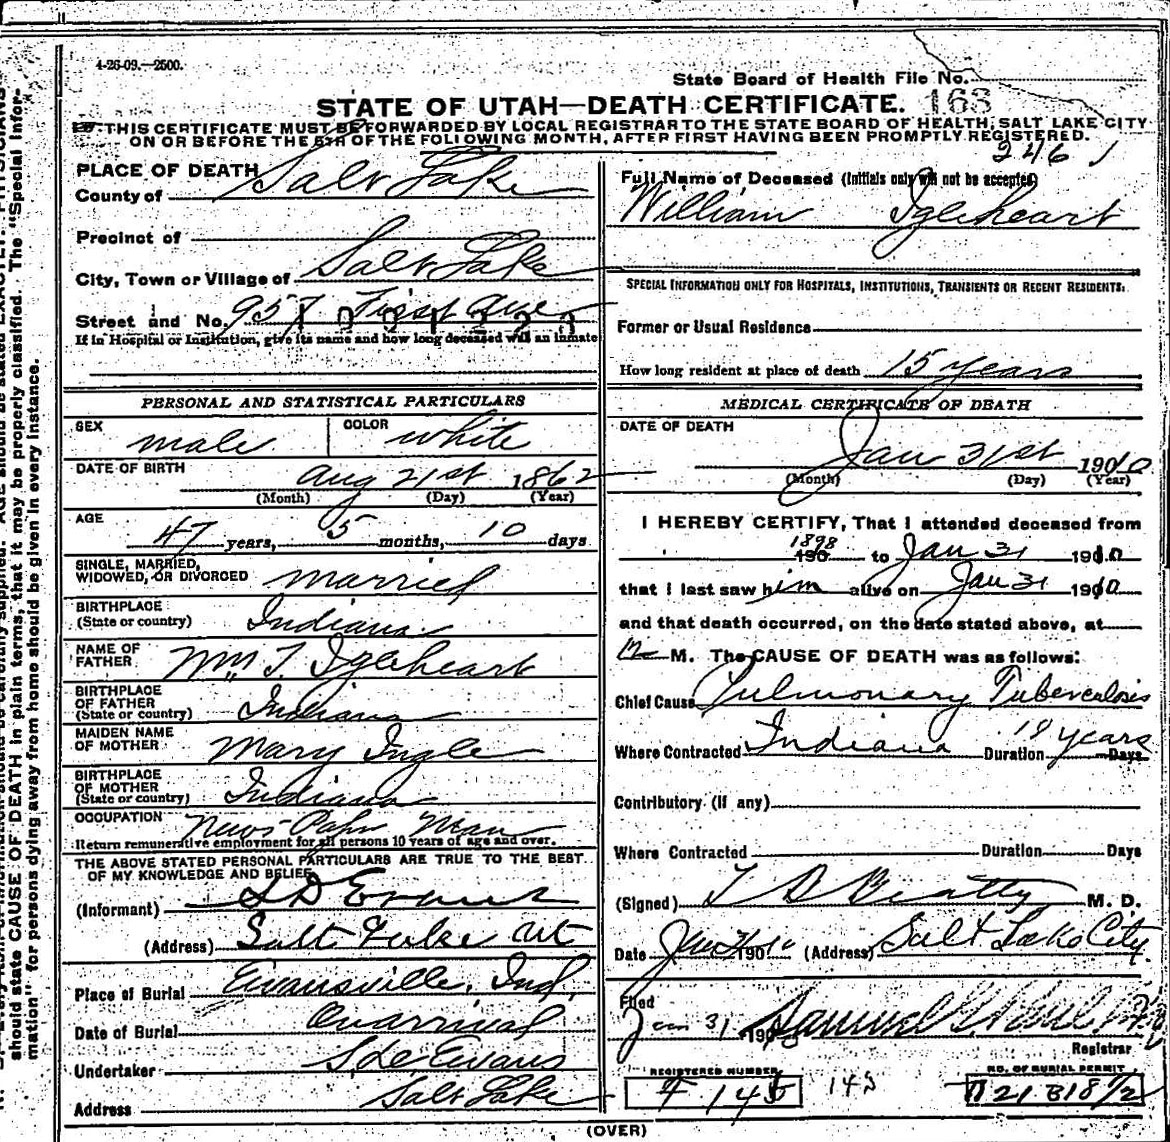 4-26-09.—2500.
State Board of Health File No.
STATE OF UTAH—DEATH CERTIFICATE. 163
THIS CERTIFICATE MUST BE FORWARDED BY LOCAL REGISTRAR TO THE STATE BOARD OF HEALTH, SALT LAKE CITY
ON OR BEFORE THE 5TH OF THE FOLLOWING MONTH, AFTER FIRST HAVING BEEN PROMPTLY REGISTERED.
246
PLACE OF DEATH
County of Salt Lake
Precinct of
City, Town or Village of Salt Lake
Street and No. 957 First Ave
If in Hospital or Institution, give its name and how long deceased was an inmate
PERSONAL AND STATISTICAL PARTICULARS
SEX male COLOR white
DATE OF BIRTH Aug 21st 1862
(Month) (Day) (Year)
AGE
47 years, 5 months, 10 days
SINGLE, MARRIED,
WIDOWED, OR DIVORCED married
BIRTHPLACE
(State or country) Indiana
NAME OF
FATHER Wm T. Igleheart
BIRTHPLACE
OF FATHER
(State or country) Indiana
MAIDEN NAME
OF MOTHER Mary Ingle
BIRTHPLACE
OF MOTHER
(State or country) Indiana
OCCUPATION News Papr Man
Return remunerative employment for all persons 10 years of age and over.
THE ABOVE STATED PERSONAL PARTICULARS ARE TRUE TO THE BEST
OF MY KNOWLEDGE AND BELIEF
(Informant) S D Evans
(Address) Salt Lake Ut
Place of Burial Evansville, Ind.
Date of Burial On arrival
Undertaker S. D. Evans
Address Salt Lake
Full Name of Deceased (Initials only will not be accepted)
William Igleheart
SPECIAL INFORMATION ONLY FOR HOSPITALS, INSTITUTIONS, TRANSIENTS OR RECENT RESIDENTS.
Former or Usual Residence
How long resident at place of death 15 years
MEDICAL CERTIFICATE OF DEATH
DATE OF DEATH
Jan 31st 1910
(Month) (Day) (Year)
I HEREBY CERTIFY, That I attended deceased from
1898 190 to Jan 31 1910
that I last saw him alive on Jan 31 1910
and that death occurred, on the date stated above, at
12 M. The CAUSE OF DEATH was as follows:
Chief Cause Pulmonary Tuberculosis
Where Contracted Indiana Duration 19 years Days
Contributory (if any)
Where Contracted Duration Days
(Signed) T B Beatty M. D.
Date Jan 31 1910 (Address) Salt Lake City
Filed
Jan 31 190 Samuel G.
Registrar
REGISTERED NUMBER NO. OF BURIAL PERMIT
F 145 145 21818 1/2
(OVER)
should state CAUSE OF DEATH in plain terms, that it may be properly classified. The "Special Infor-
mation" for persons dying away from home should be given in every instance.